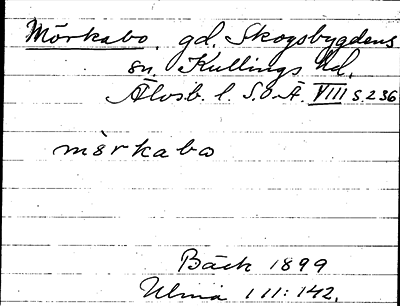 Mörkabo. gd. Skogsbygdens
sn. Kullings hd.
Älvsb. l. S.O.Ä. VIII s. 236
mòrkabo
Bäck 1899
Ulma 111:142.